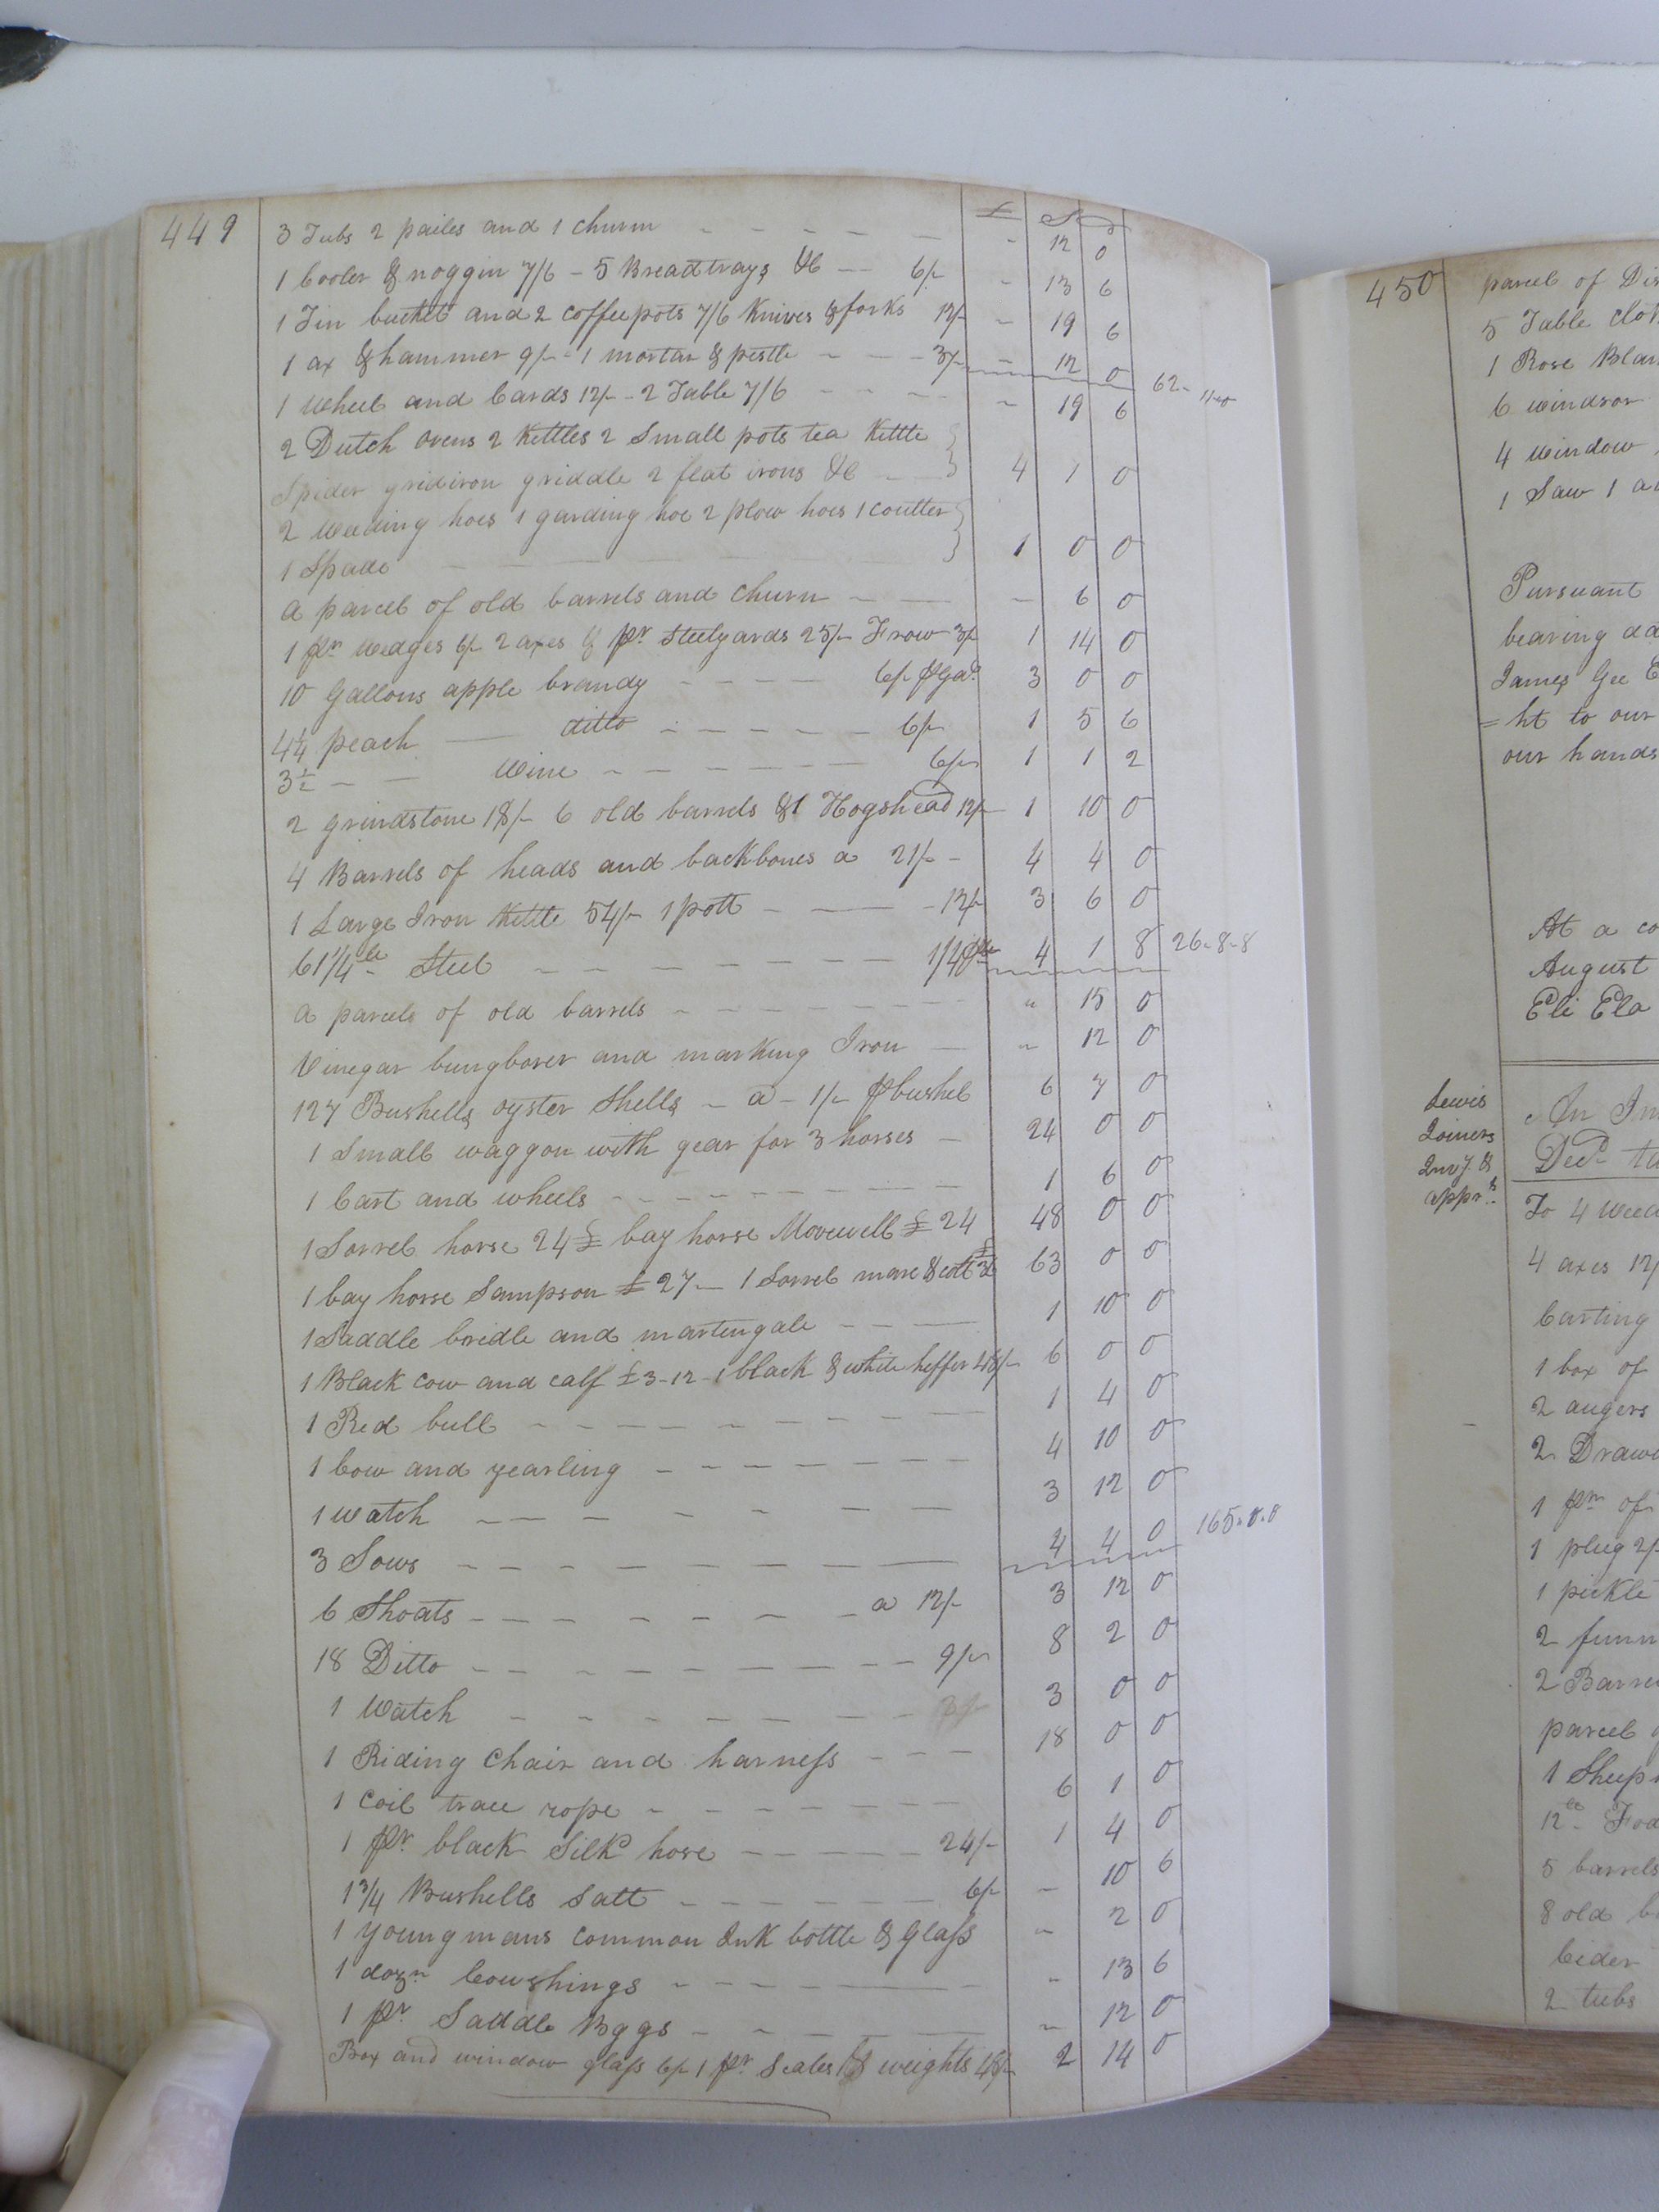 449
£ S d
3 Tubs 2 pailes and 1 churn - - - - - - 12 0
1 Cooler & noggin 7/6 - 5 Bread trays &C -- 6/- - 13 6
1 Tin bucket and 2 coffeepots 7/6 Knives & forks 12/- - 19 6
1 ax & hammer 9/- - 1 mortar & pestle - - - 3/- - 12 0 62-11-0
1 Wheel and Cards 12/- - 2 Table 7/6 - - - - 19 6
2 Dutch ovens 2 Kettles 2 Small pots tea Kettle }
Spider gridiron griddle 2 flat irons &C - - } 4 1 0
2 Weeding hoes 1 garding hoe 2 plow hoes 1 coulter }
1 Spade } 1 0 0
a parcel of old barrels and churn - - - 6 0
1 pr wedges 6/- 2 axes & 1 pr Steelyards 25/- Frow 3/- 1 14 0
10 Gallons apple brandy - - - - 6/- ⅌ Gal 3 0 0
4¼ peach — ditto - - - - - 6/- 1 5 6
3½ - - Wine - - - - - - 6/- 1 1 2
2 grindstone 18/- 6 old barrels & 1 Hogshead 12/- 1 10 0
4 Barrels of heads and backbones a 21/- - 4 4 0
1 Large Iron Kettle 54/- 1 pott - — - 12/- 3 6 0
61¼ lb Steel - - - - - - - 1/4 ⅌ lb 4 1 8 26-8-8
a parcele of old barrels - - - - - - - " 15 0
Vinegar bungborer and marking Iron — - 12 0
127 Bushells oyster Shells - a - 1/- ⅌ bushel 6 7 0
1 Small waggon with gear for 3 horses - 24 0 0
1 Cart and wheels - - - - - - - - - 1 6 0
1 Sorrel horse 24£ bay horse Movewell £24 48 0 0
1 bay horse Sampson £27 - 1 Sorrel mare & colt £36 63 0 0
1 Saddle bridle and martingale - - — 1 10 0
1 Black cow and calf £3-12 - 1 black & white heffer 48/- 6 0 0
1 Red bull - - - - - - - - - 1 4 0
1 Cow and yearling - - - - - - - 4 10 0
1 Watch - - - - - - - 3 12 0
3 Sows - - - - - - - — 4 4 0 165-8-0
6 Shoats - - - - - - - a 12/- 3 12 0
18 Ditto - - - - - - - - - 9/- 8 2 0
1 Watch - - - - - - - - 3 0 0
1 Riding Chair and harness - - - 18 0 0
1 Coil trace rope - - - - - - - - 6 1 0
1 pr black Silk hose - - - - - 24/- 1 4 0
1¾ Bushells Salt - - - - - - 6/- - 10 6
1 young mans common Ink bottle & Glass - 2 0
1 dozn Cowshings - - - - - — - - 13 6
1 pr Saddle Bggs - - - — — - 12 0
Box and window glass 6/- 1 pr Scales & weights 48/- 2 14 0
450
parcel of
5 Table
1 Rose
6 Windsor
4 Window
1 Saw 1
Pursuant
bearing
James Gee
=ht to our
our hands
At a
August
Eli Ela
Lewis
Joiners
Invy. &
apprs.
An
Decd.
To 4
4 axes
Carting
1 box of
2 augers
2
1 pr of
1 plug 2/
1 pickle
2
2
parcel
1
12
5 barrels
8 old
Cider
2 tubs